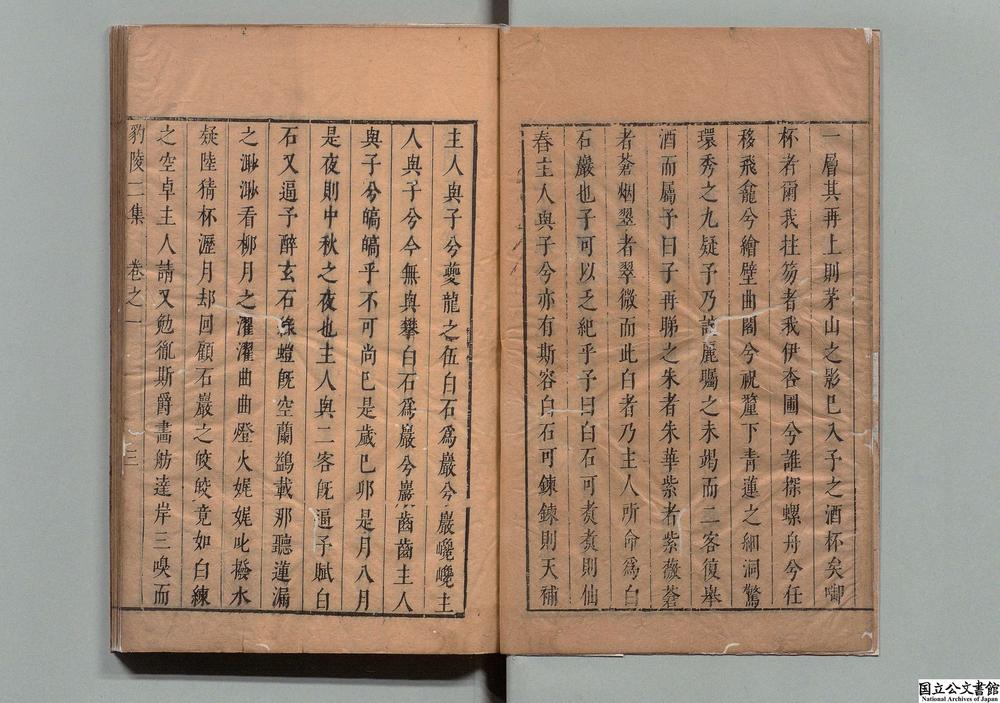 一層其再上則茅山之影已入子之酒杯矣啣
杯者爾我拄笏者我伊杏圃兮誰探螺舟兮任
移飛龕兮繪壁曲閣兮祝釐下青蓮之細洞驚
環秀之九疑予乃談麗矚之未竭而二客復舉
酒而屬予曰子再睇之朱者朱華紫者紫薇蒼
者蒼烟翠者翠微而此白者乃主人所命為白
石巖也子可以乏紀乎予曰白石可煑煑則仙
春主人與子兮亦有斯容白石可鍊鍊則天補
主人與子兮夔龍之伍白石為巖兮巖巉巉主
人與子兮今無與攀白石為巖兮巖齒齒主人
與子兮皜皜乎不可尚已是歲己卯是月八月
是夜則中秋之夜也主人與二客既逼予賦白
石又逼予醉玄石綠螘既空蘭鷁載那聽蓮漏
之淵淵看柳月之濯濯曲曲燈火娓娓叱撥水
疑陸猜杯瀝月却回顧石巖之皎皎竟如白練
之空卓主人請又勉徹斯爵畵舫達岸三嗅而
豹陵二集 卷之一 三
国立公文書館
National Archives of Japan